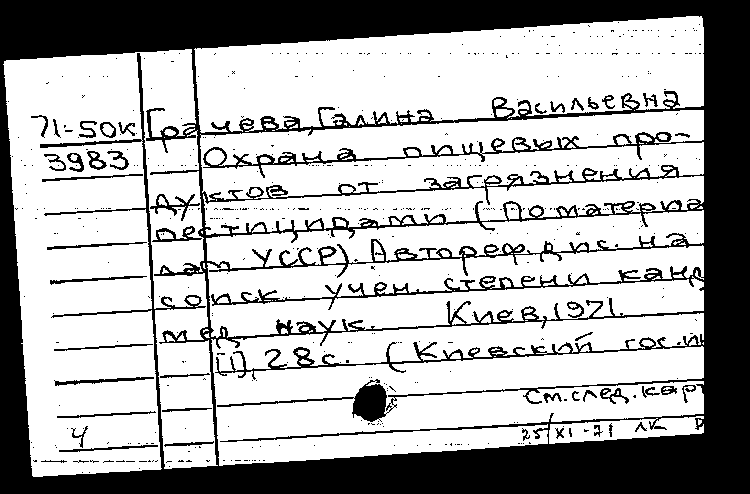 71-50к Грачева, Галина Васильевна
3983 Охрана пищевых про-
дуктов от загрязнения
пестицидами (По материа
лам УССР). Автореф. дис. на
соиск. учен. степени канд
мед. наук. Киев, 1971.
[1], 28с. (Киевский гос. и
См. след. карт
4
25/XI-71 ЛК Р